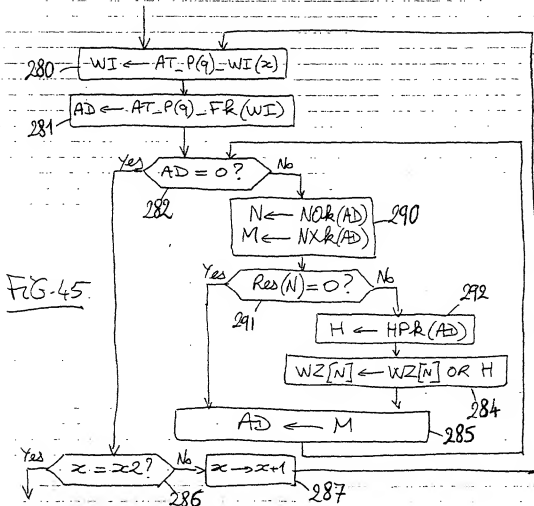 280
WI ← AT_P(q)_WI(x)
281
AD ← AT_P(q)_Fk(WI)
Yes
AD = 0?
No
282
N ← NOk(AD)
M ← NXk(AD)
290
FIG. 45
Yes
Res(N) = 0?
No
291
292
H ← HPk(AD)
WZ[N] ← WZ[N] OR H
284
AD ← M
285
Yes
x = x2?
No
x → x+1
286
287